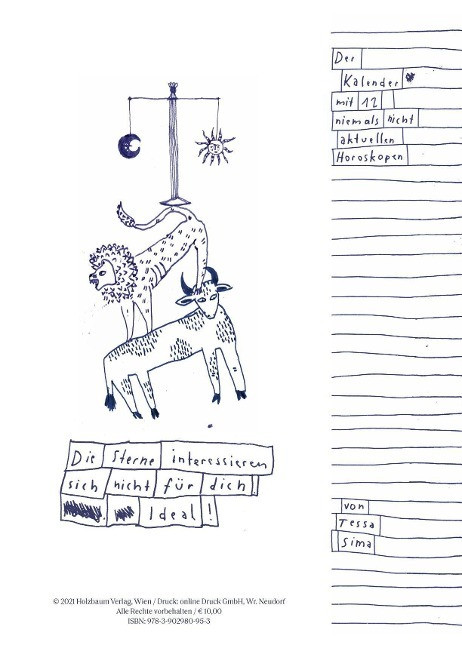 Der
Kalender
mit 12
niemals nicht
aktuellen
Horoskopen
Die Sterne interessieren
sich nicht für dich!
Ideal!
von
Tessa
Sima
© 2021 Holzbaum Verlag, Wien / Druck: online Druck GmbH, Wr. Neudorf
Alle Rechte vorbehalten / € 10,00
ISBN: 978-3-902980-95-3